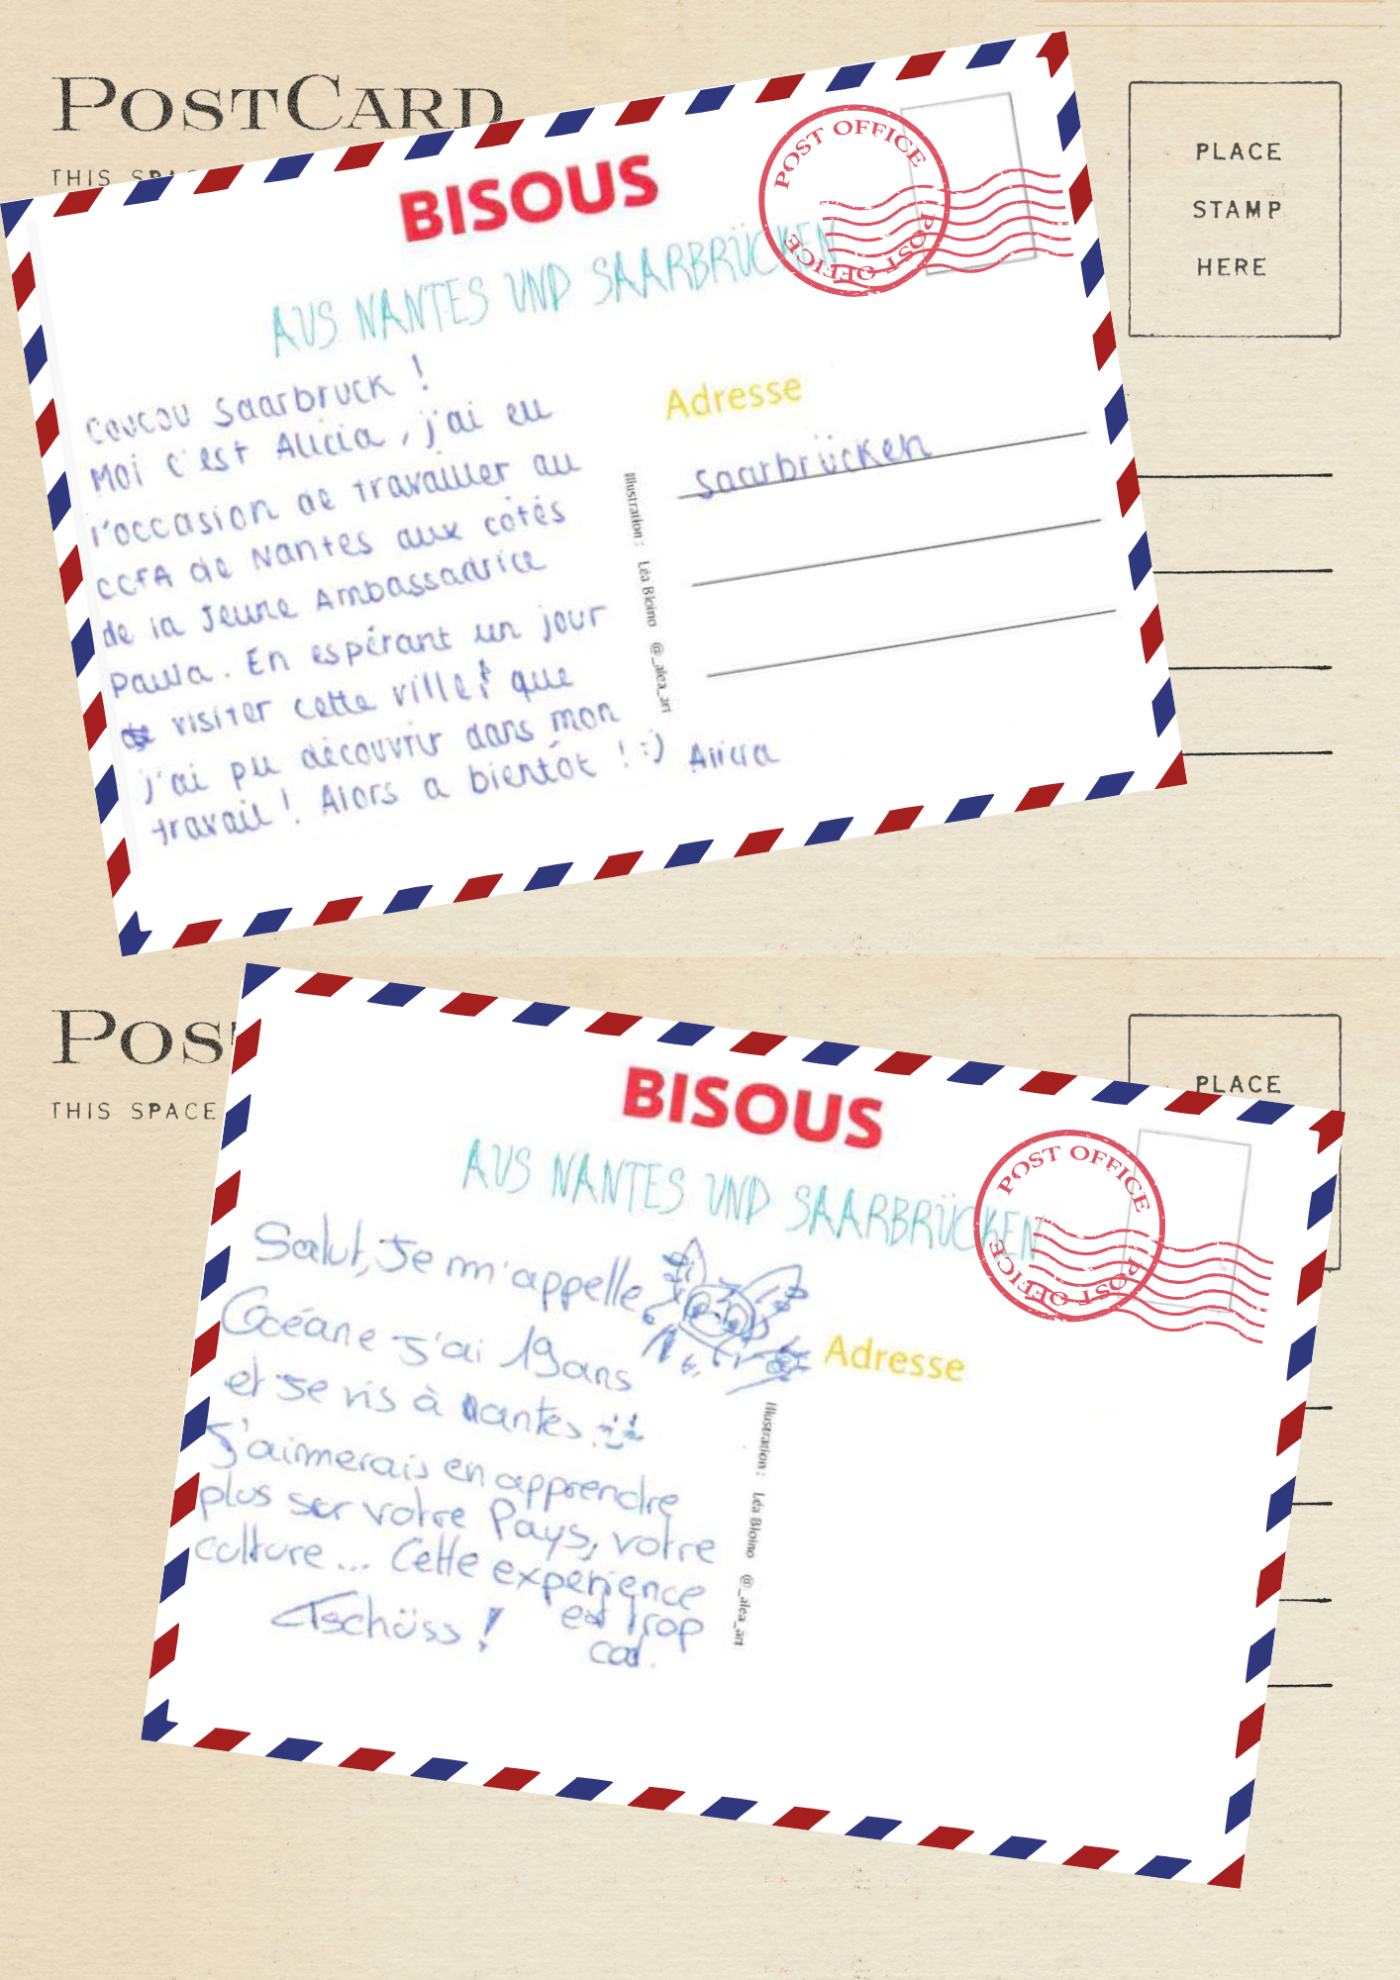 POSTCARD
THIS SPA
PLACE
STAMP
HERE
BISOUS
AUS NANTES UND SAARBRÜCKEN
POST OFFICE
POST OFFICE
Coucou Saarbruck !
Moi c'est Alicia, j'ai eu
l'occasion de travailler au
CCFA de Nantes aux cotés
de la Jeune Ambassadrice
Paula. En espérant un jour
visiter cette ville que
j'ai pu découvrir dans mon
travail ! Alors a bientôt ! :) Alicia
Adresse
Saarbrücken
Illustration : Léa Bloino @_alea_art
POS
THIS SPACE
PLACE
BISOUS
AUS NANTES UND SAARBRÜCKEN
POST OFFICE
POST OFFICE
Salut, Je m'appelle
Océane J'ai 19 ans
et je vis à Nantes.
J'aimerais en apprendre
plus sur votre Pays, votre
culture... Cette expérience
est trop
cool.
Tschüss !
Adresse
Illustration : Léa Bloino @_alea_art